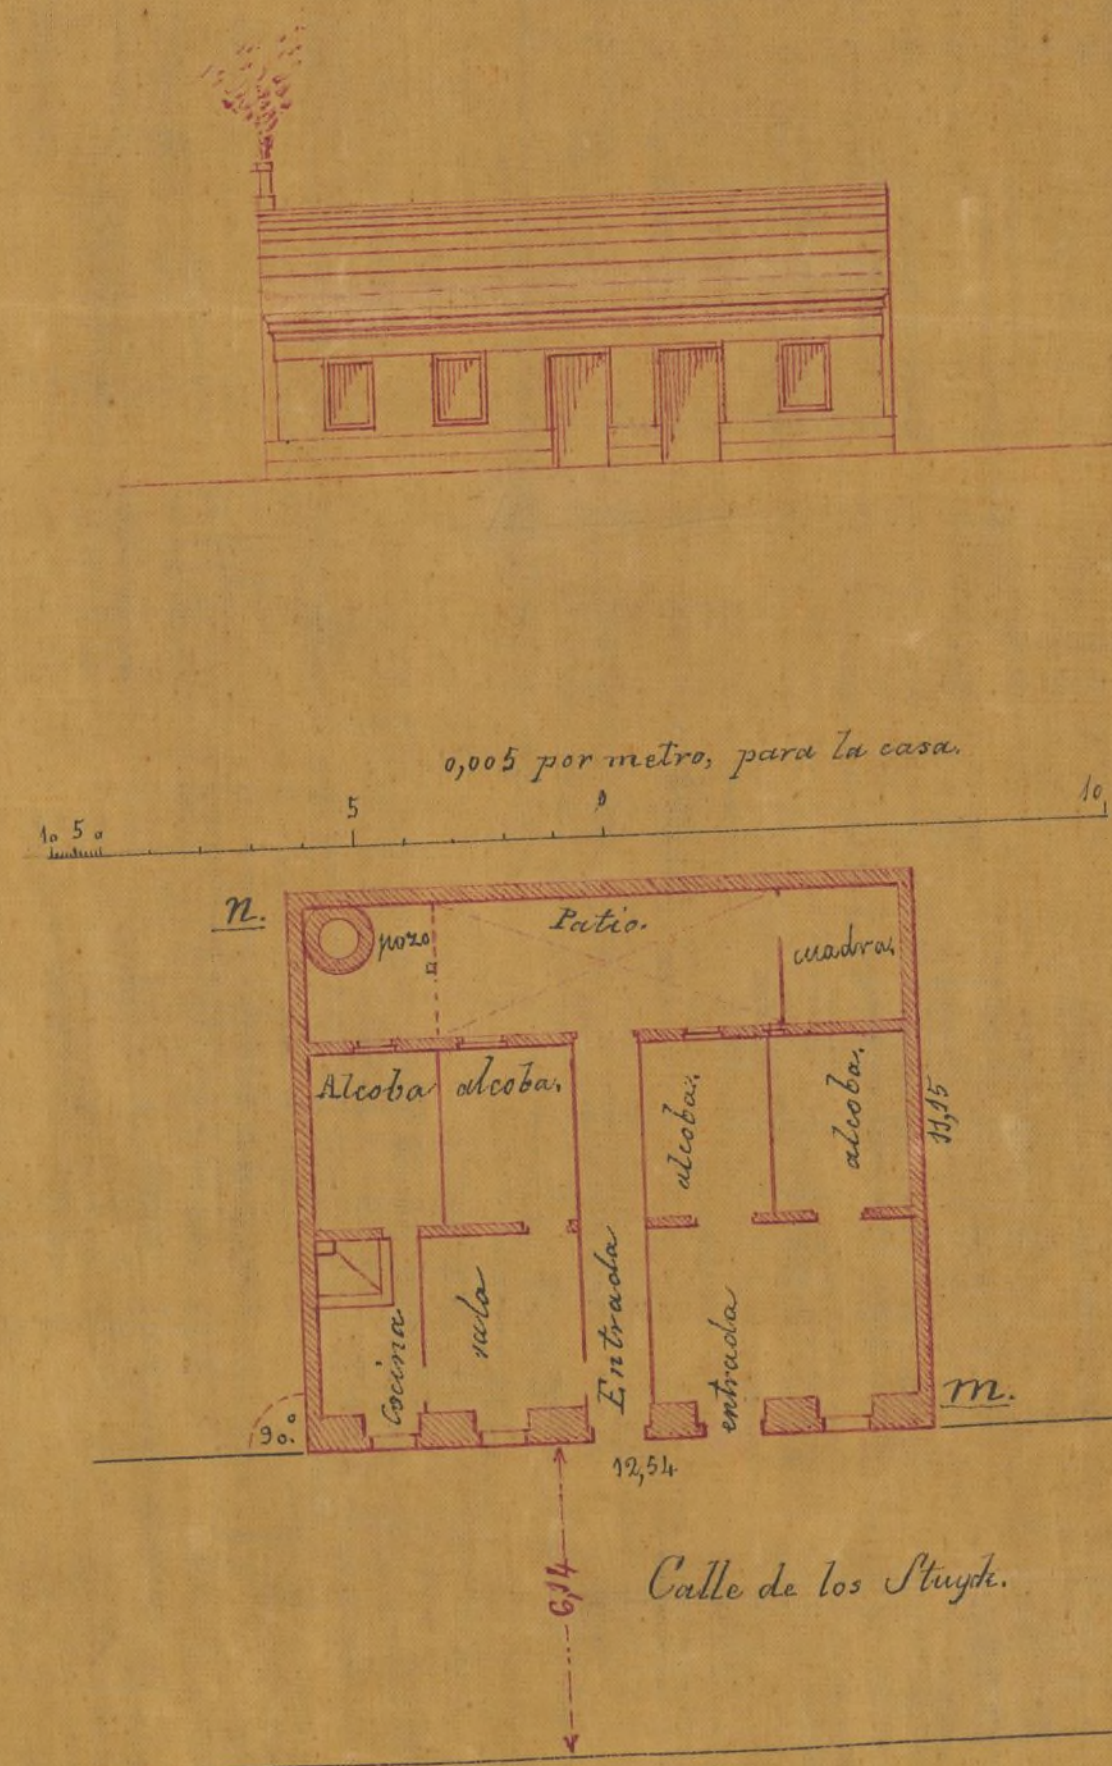 0,005 por metro, para la casa.
10 5 0
5
0
10
n.
pozo
Patio.
cuadra.
Alcoba
alcoba.
alcoba.
alcoba.
11,15
Cocina
sala
Entrada
entrada
m.
90.°
12,54
6,14
Calle de los Stuyk.